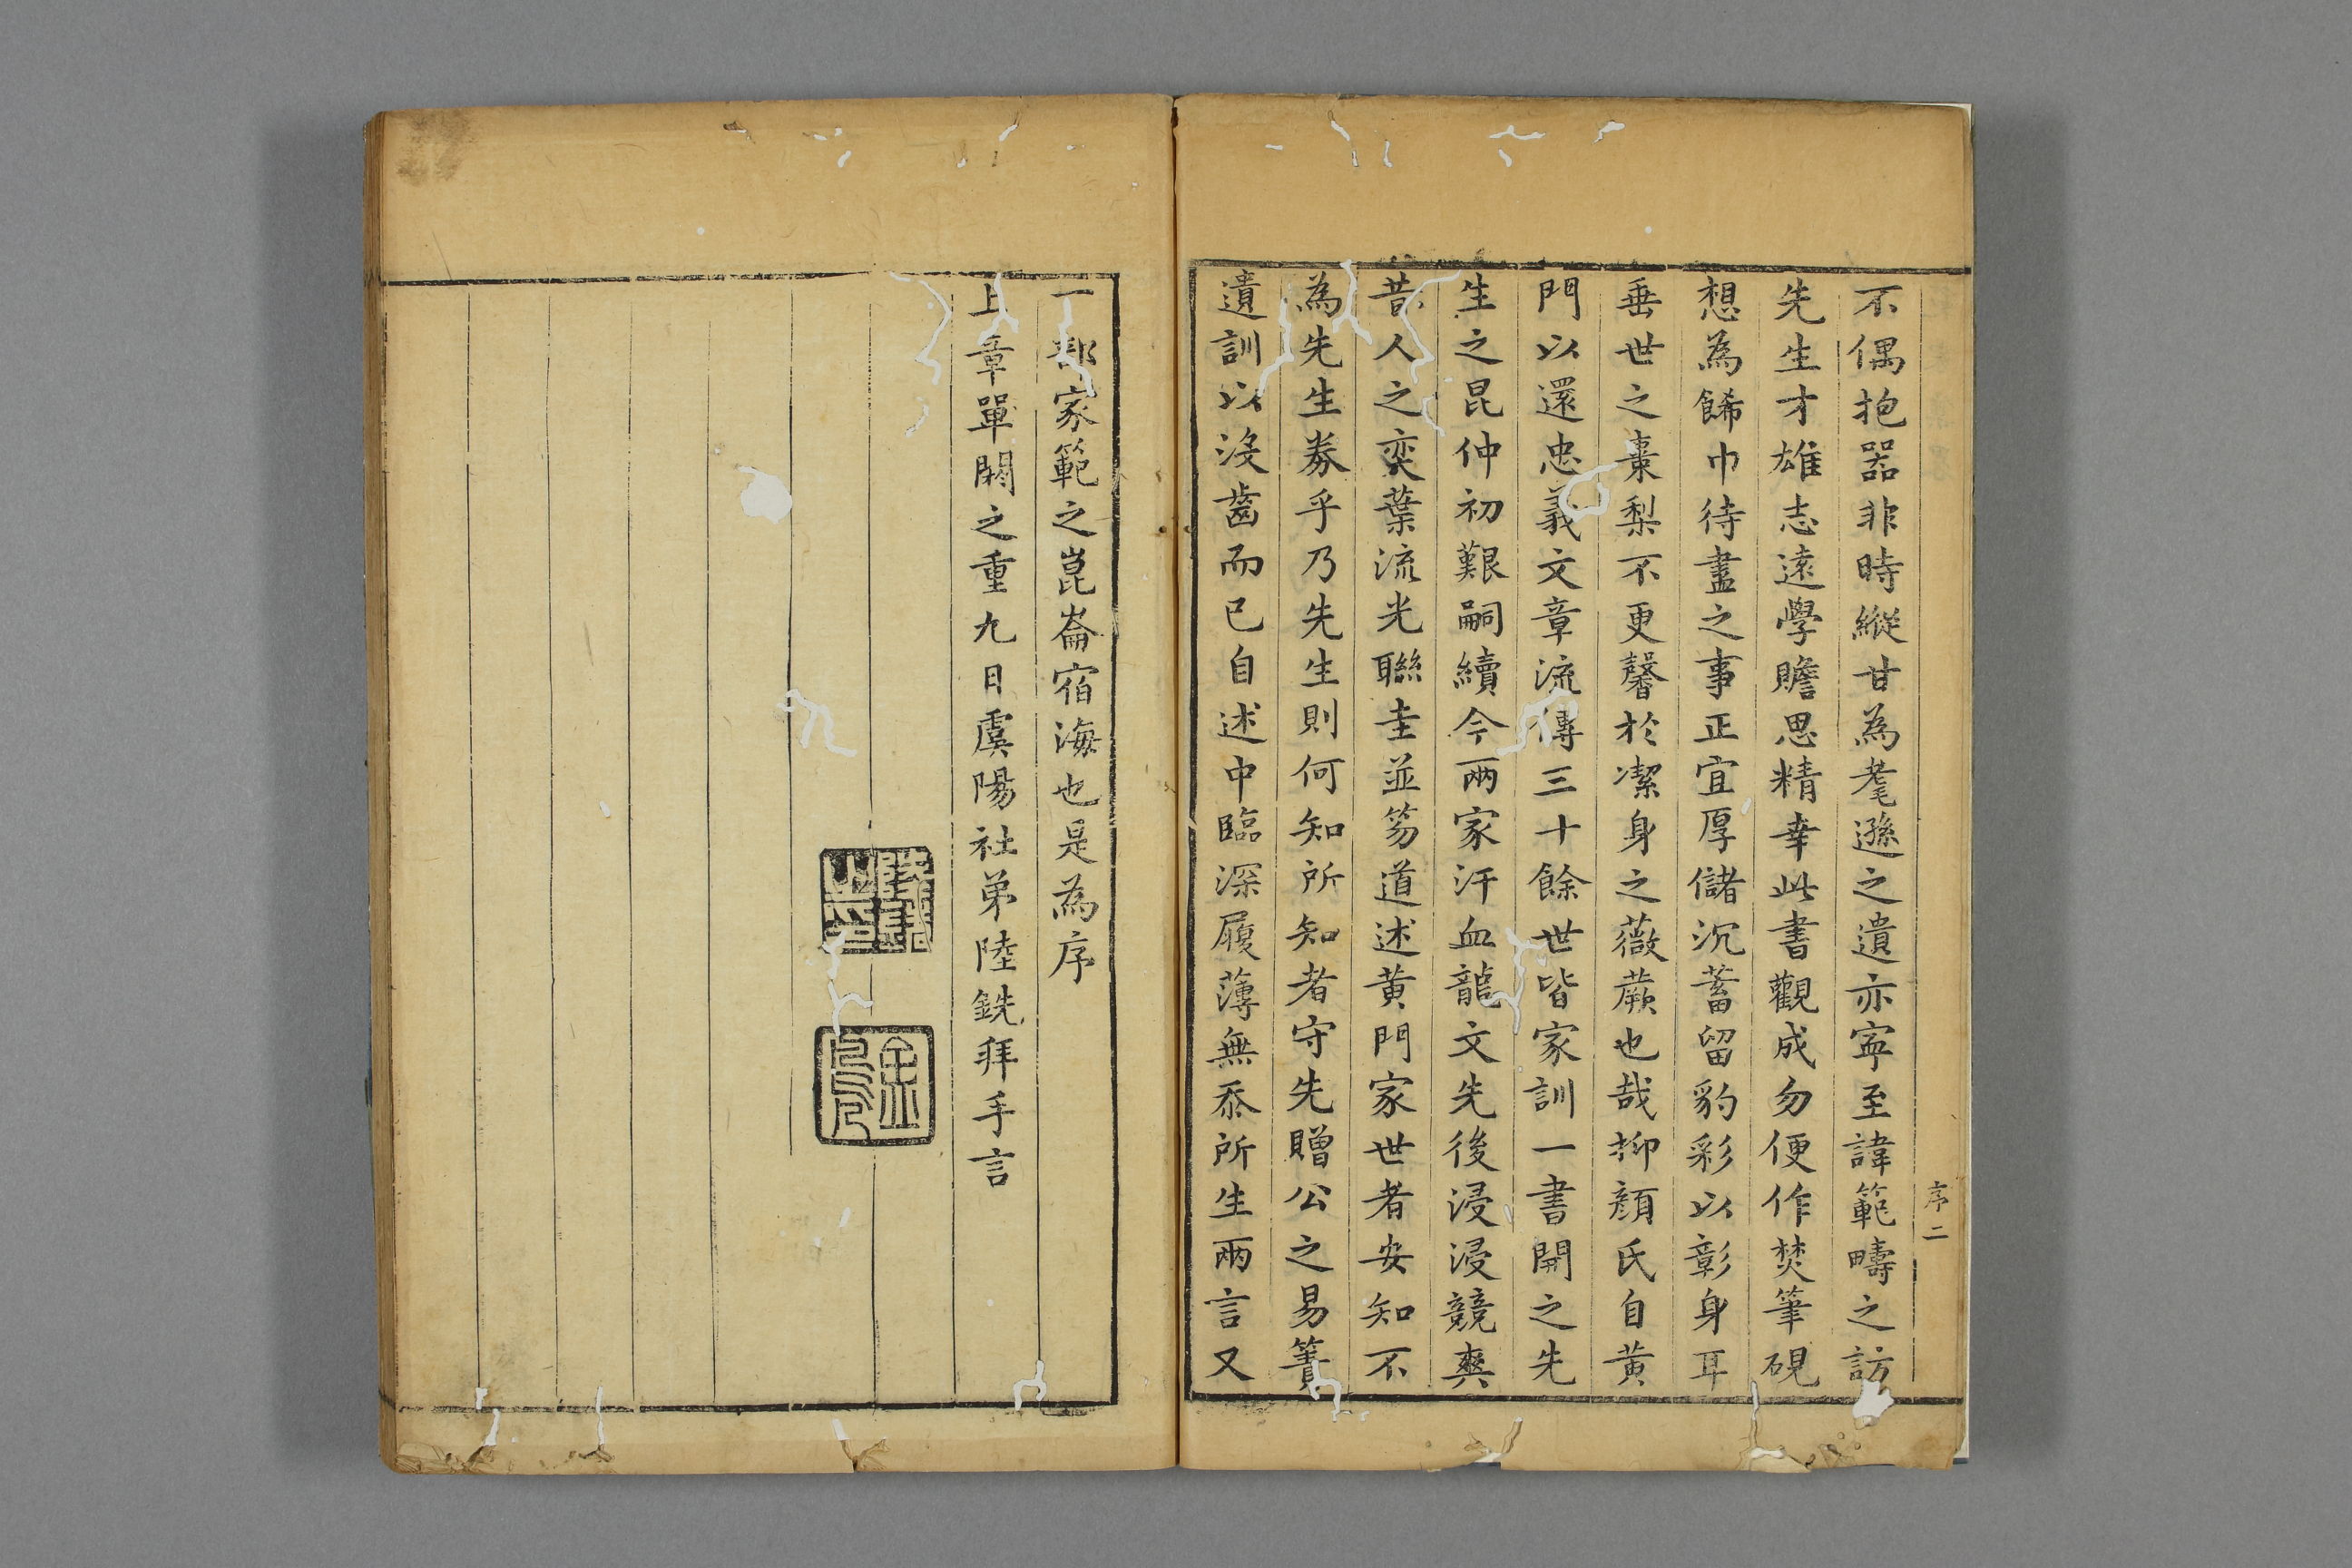 序二
不偶抱器非時縱甘為耄遜之遺亦寧至諱範疇之訪
先生才雄志遠學贍思精幸此書觀成勿便作焚筆硯
想為餙巾待盡之事正宜厚儲沉蓄留豹彩以彰身耳
垂世之棗梨不更馨於潔身之薇蕨也哉抑顏氏自黄
門以還忠義文章流傳三十餘世皆家訓一書開之先
生之昆仲初艱嗣續今兩家汗血龍文先後浸浸競爽
昔人之奕葉流光聯圭並笏道述黄門家世者安知不
為先生券乎乃先生則何知所知者守先贈公之易簀
遺訓以沒齒而已自述中臨深履薄無忝所生兩言又
一部家範之崑崙宿海也是為序
上章單閼之重九日虞陽社弟陸銑拜手言